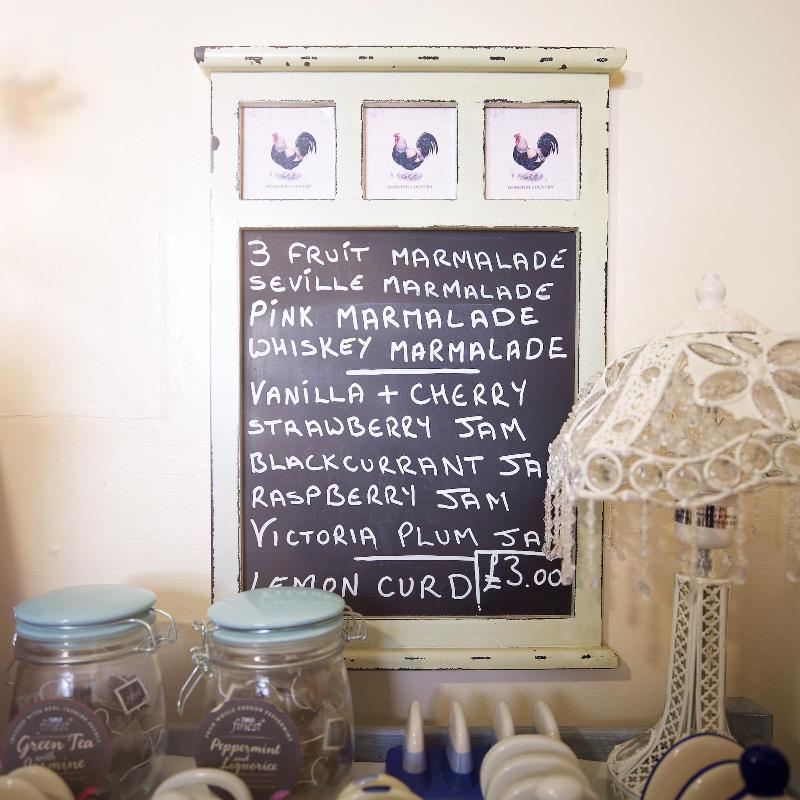 ROOSTER COUNTRY
ROOSTER COUNTRY
ROOSTER COUNTRY
3 FRUIT MARMALADE
SEVILLE MARMALADE
PINK MARMALADE
WHISKEY MARMALADE
VANILLA + CHERRY
STRAWBERRY JAM
BLACKCURRANT JA
RASPBERRY JAM
VICTORIA PLUM JA
LEMON CURD £3.00
FINEST
Green Tea
with
Jasmine
FINEST
Peppermint
and
Liquorice